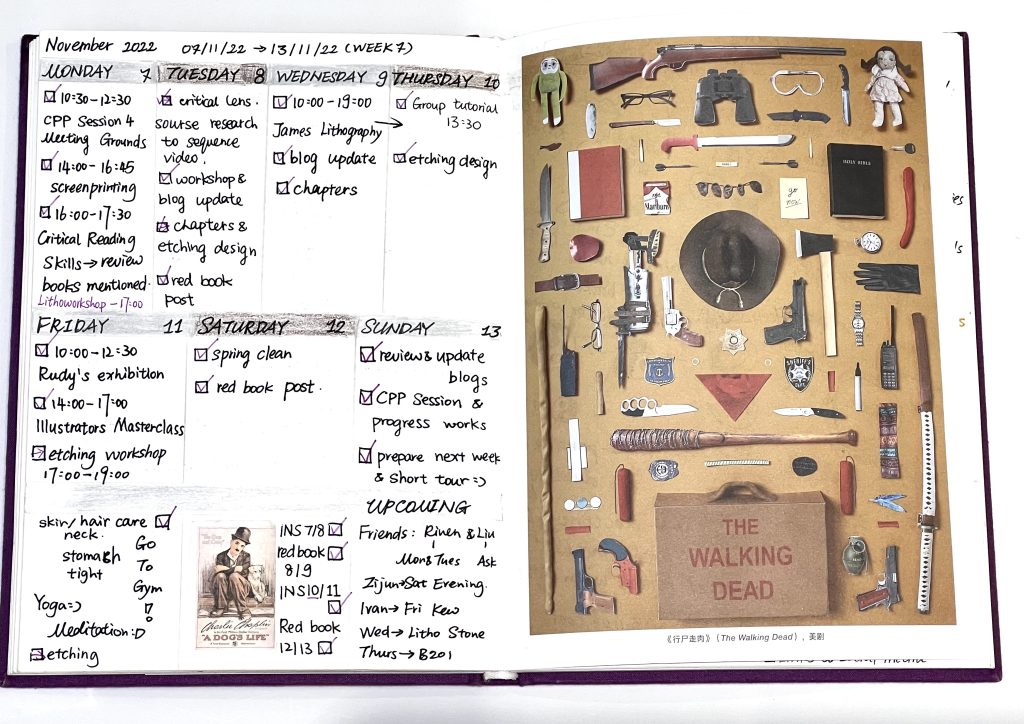 November 2022 07/11/22 → 13/11/22 (WEEK 7)
MONDAY 7
10:30-12:30
CPP Session 4
Meeting Grounds
14:00-16:45
screenprinting
16:00-17:30
Critical Reading
Skills → review
books mentioned.
Lithoworkshop-17:00
TUESDAY 8
critical lens.
sourse research
to sequence
video.
workshop &
blog update
chapters &
etching design
red book
post
WEDNESDAY 9
10:00-19:00
James Lithography →
blog update
chapters
THURSDAY 10
Group tutorial
13:30
etching design
FRIDAY 11
10:00-12:30
Rudy's exhibition
14:00-17:00
Illustrators Masterclass
etching workshop
17:00-19:00
SATURDAY 12
spring clean
red book post.
SUNDAY 13
review & update
blogs
CPP Session &
progress works
prepare next week
& short tour =)
skin/hair care
neck.
stomach
tight
Go
To
Gym
!
Yoga=)
Meditation:D
etching
Charlie Chaplin
"A DOG'S LIFE"
INS 7/8
red book
8/9
INS 10/11
Red book
12/13
UPCOMING
Friends: Riven & Liu
Mon & Tues Ask
Zijun → Sat Evening.
Ivan → Fri Kew
Wed → Litho Stone
Thurs → B201
HOLY BIBLE
Marlboro
go
SHERIFF'S
THE
WALKING
DEAD
《行尸走肉》(The Walking Dead),美剧